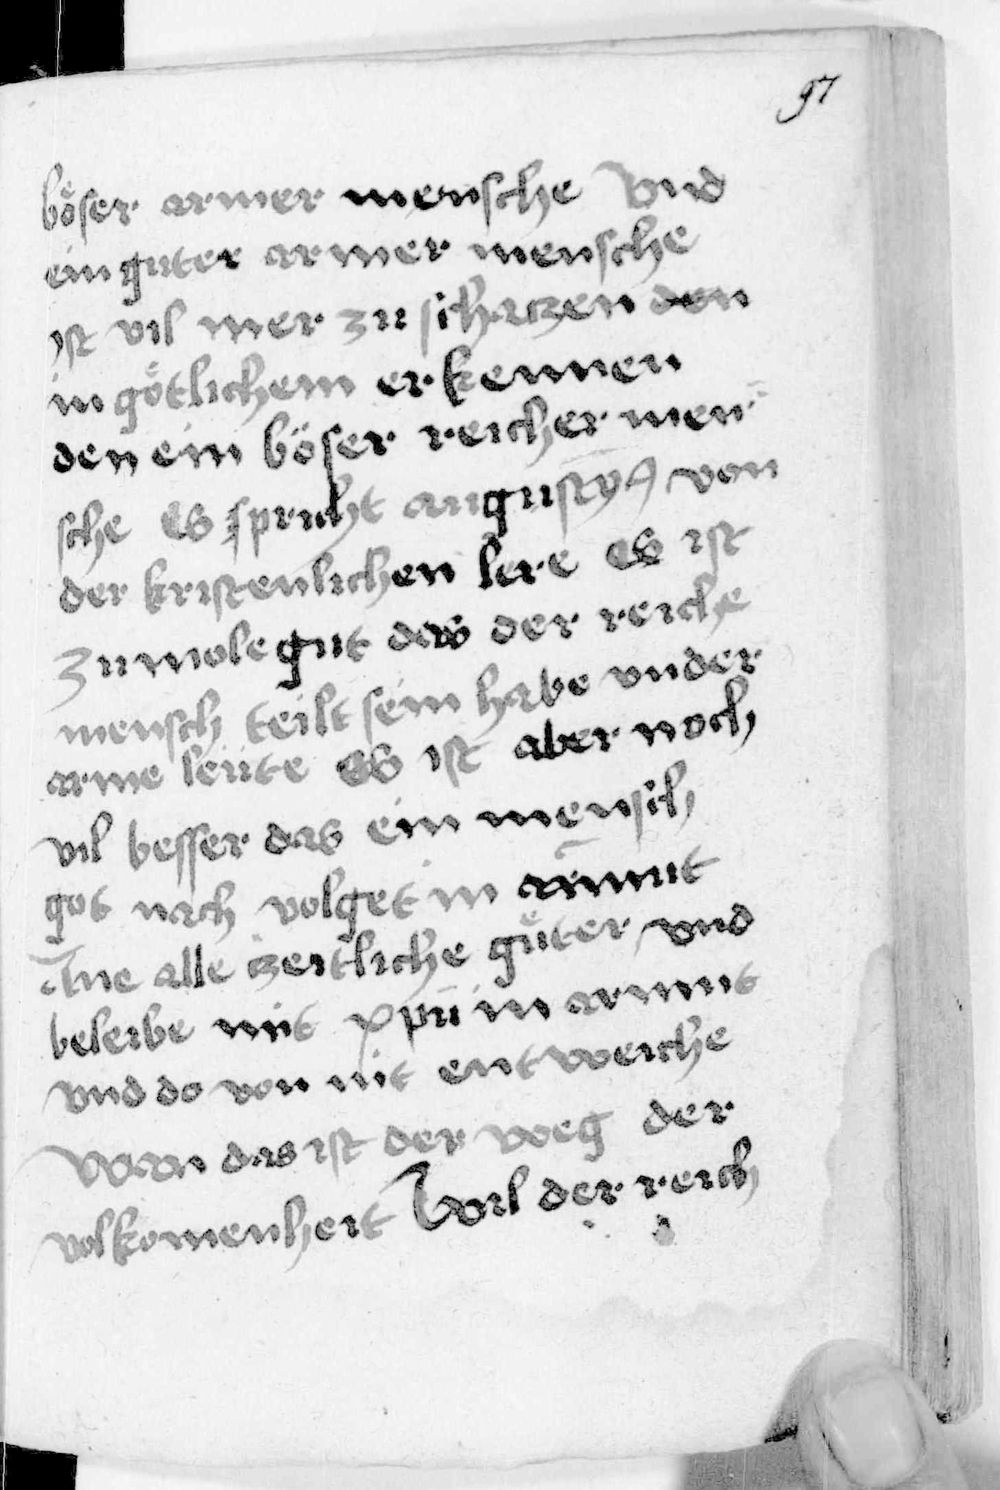 97
böser armer mensche Vnd
ein guter armer mensche
ist vil mer zu schatzen den
in götlichem erkennen
den ein böser reicher men
sche Es spricht augustỹꝰ von
der kristenlichen lere Es ist
zu mole gut das der reiche
mensch teilt sein habe vnder
arme leüte Es ist aber noch
vil besser das ein mensch
got nach volget in armut
Ane alle zeitliche güter vnd
beleibe mit xp̄ū in armut
vnd do von nit entweiche
Wan das ist der weg der
volkomenheit Wil der reich